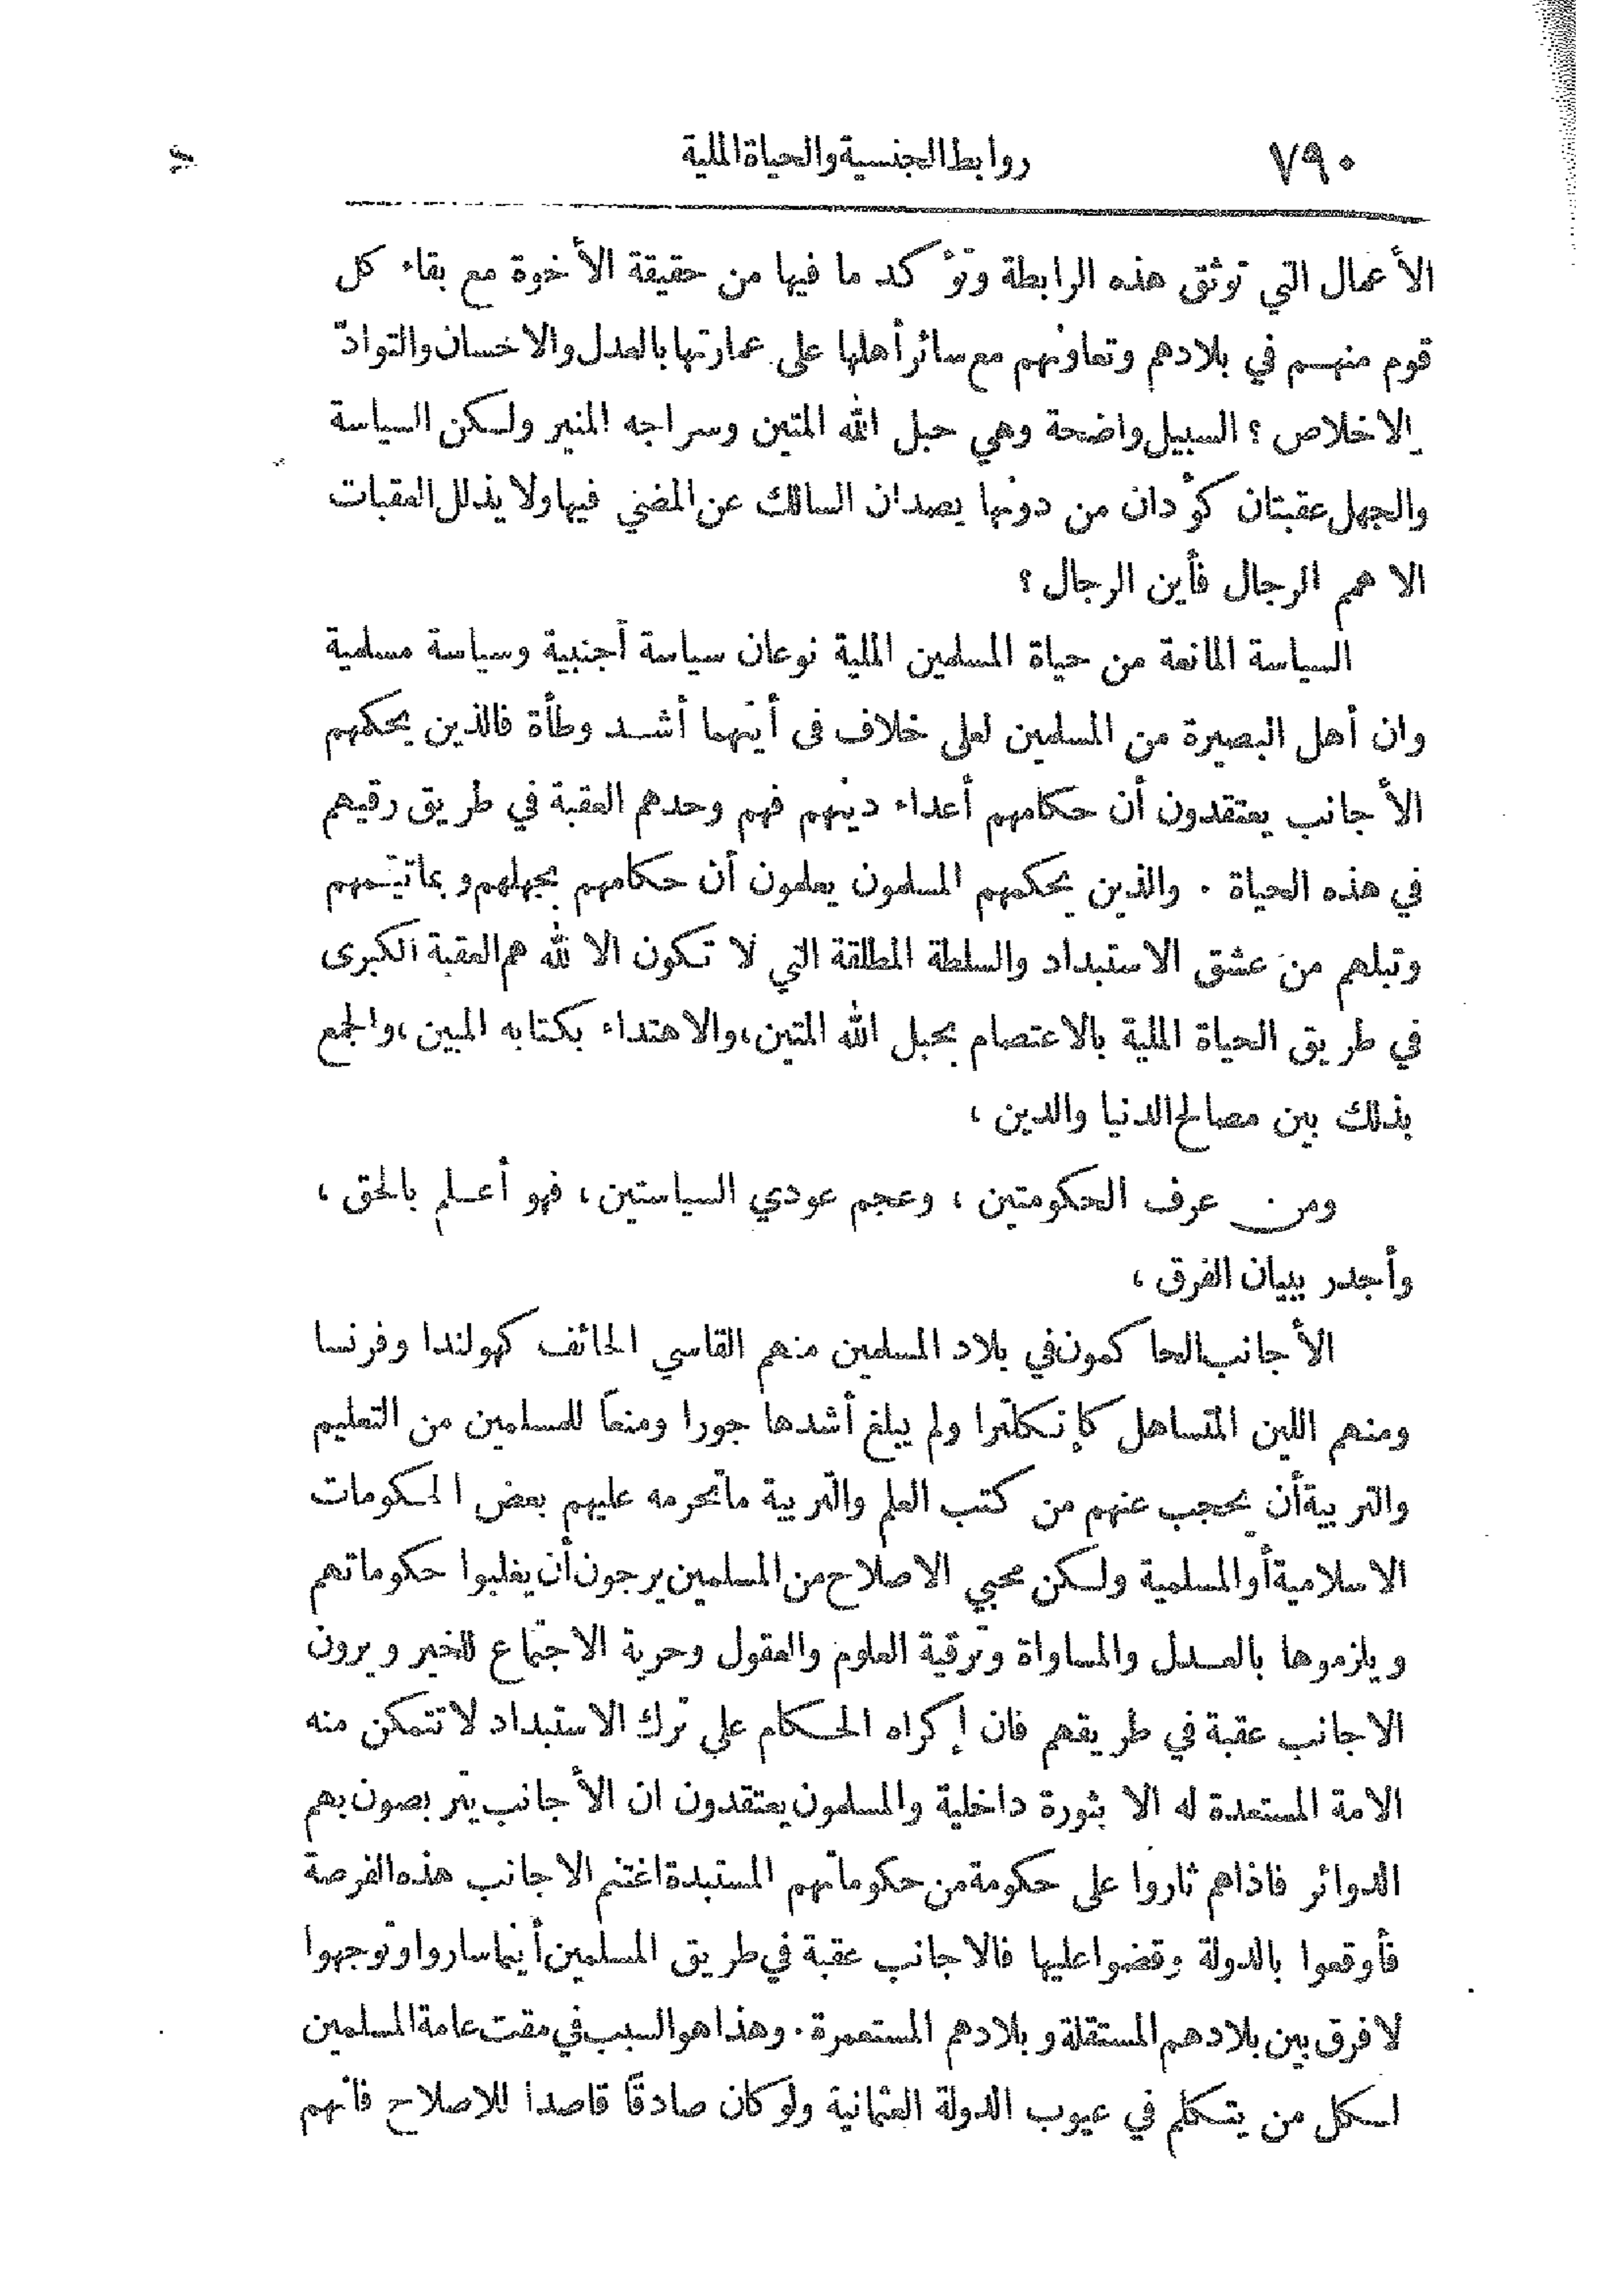 ٧٩٠ روابط الجنسية والحياة الملية
الأعمال التي توثق هذه الرابطة وتؤكد ما فيها من حقيقة الأخوة مع بقاء كل
قوم منهم في بلادهم وتعاونهم مع سائر أهلها على عمارتها بالعدل والاحسان والتوادّ
الاخلاص ؟ السبيل واضحة وهي حبل الله المتين وسراجه المنير ولكن السياسة
والجهل عقبتان كؤدان من دونها يصدان السالك عن المضي فيها ولا يذلل العقبات
الا همم الرجال فأين الرجال ؟
السياسة المانعة من حياة المسلمين الملية نوعان سياسة أجنبية وسياسة مسلمية
وان أهل البصيرة من المسلمين لعلى خلاف فى أيتهما أشد وطأة فالذين يحكمهم
الأجانب يعتقدون أن حكامهم أعداء دينهم فهم وحدهم العقبة في طريق رقيهم
في هذه الحياة . والذين يحكمهم المسلمون يعلمون أن حكامهم بجهلهم وبما تيّمهم
وتبلهم من عشق الاستبداد والسلطة المطلقة التي لا تكون الا لله هم العقبة الكبرى
في طريق الحياة الملية بالاعتصام بحبل الله المتين، والاهتداء بكتابه المبين، والجمع
بذلك بين مصالح الدنيا والدين ،
ومن عرف الحكومتين ، وعجم عودي السياستين ، فهو أعلم بالحق ،
وأجدر ببيان الفرق ،
الأجانب الحاكمون في بلاد المسلمين منهم القاسي الحائف كهولندا وفرنسا
ومنهم اللين المتساهل كإنكلترا ولم يبلغ أشدها جورا ومنعاً للمسلمين من التعليم
والتربية أن يحجب عنهم من كتب العلم والتربية ما تحرمه عليهم بعض الحكومات
الاسلامية أو المسلمية ولكن محبي الاصلاح من المسلمين يرجون أن يغلبوا حكوماتهم
ويلزموها بالعدل والمساواة وترقية العلوم والعقول وحرية الاجتماع للخير ويرون
الاجانب عقبة في طريقهم فان إكراه الحكام على ترك الاستبداد لا تتمكن منه
الامة المستعدة له الا بثورة داخلية والمسلمون يعتقدون ان الأجانب يتربصون بهم
الدوائر فاذا هم ثاروا على حكومة من حكوماتهم المستبدة اغتنم الاجانب هذه الفرصة
فأوقعوا بالدولة وقضوا عليها فالاجانب عقبة في طريق المسلمين أينما ساروا وتوجهوا
لا فرق بين بلادهم المستقلة وبلادهم المستعمرة . وهذا هو السبب في مقت عامة المسلمين
لكل من يتكلم في عيوب الدولة العثمانية ولو كان صادقاً قاصدا للاصلاح فانهم